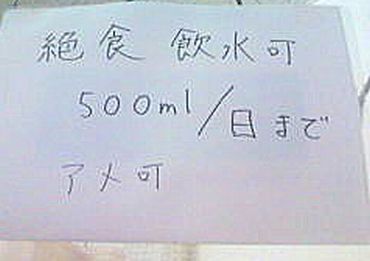 絶食 飲水可
500ml/日まで
アメ可